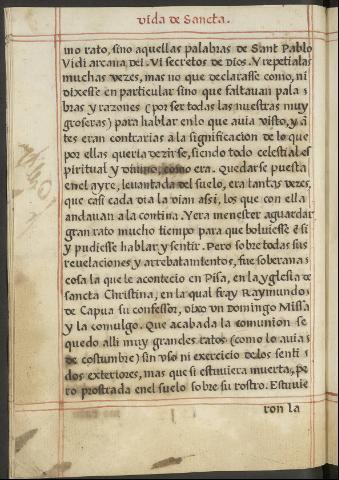 vida de Sancta.
mo rato, sino aquellas palabras de Sant Pablo
Vidi arcana dei. Vi secretos de dios. Y repetialas
muchas vezes, mas no que declarasse como, ni
dixesse en particular sino que faltauan pala
bras y razones (por ser todas las nuestras muy
groseras) para hablar enlo que auia visto, y ã
tes eran contrarias ala significacion de lo que
por ellas queria dezirse, siendo todo celestial es
piritual y diuino, como era. Quedarse puesta
en el ayre, leuantada del suelo, era tantas vezes,
que casi cada dia la vian assi, los que con ella
andauan a la contina. Y era menester aguardar
gran rato mucho tiempo para que boluiesse ẽ si
y pudiesse hablar y sentir. Pero sobre todas sus
reuelaciones y arrebatamientos, fue soberana
cosa la que le acontecio en Pisa, en la yglesia de
sancta Christina, en la qual fray Raymundo
de Capua su confessor, dixo vn Domingo Missa
y la comulgo. Que acabada la comunion se
quedo alli muy grandes ratos (como lo auia
de costumbre) sin vso ni exercicio delos senti
dos exteriores, mas que si estuuiera muerta, pe
ro prostrada enel suelo sobre su rostro. Estuuie
ron la